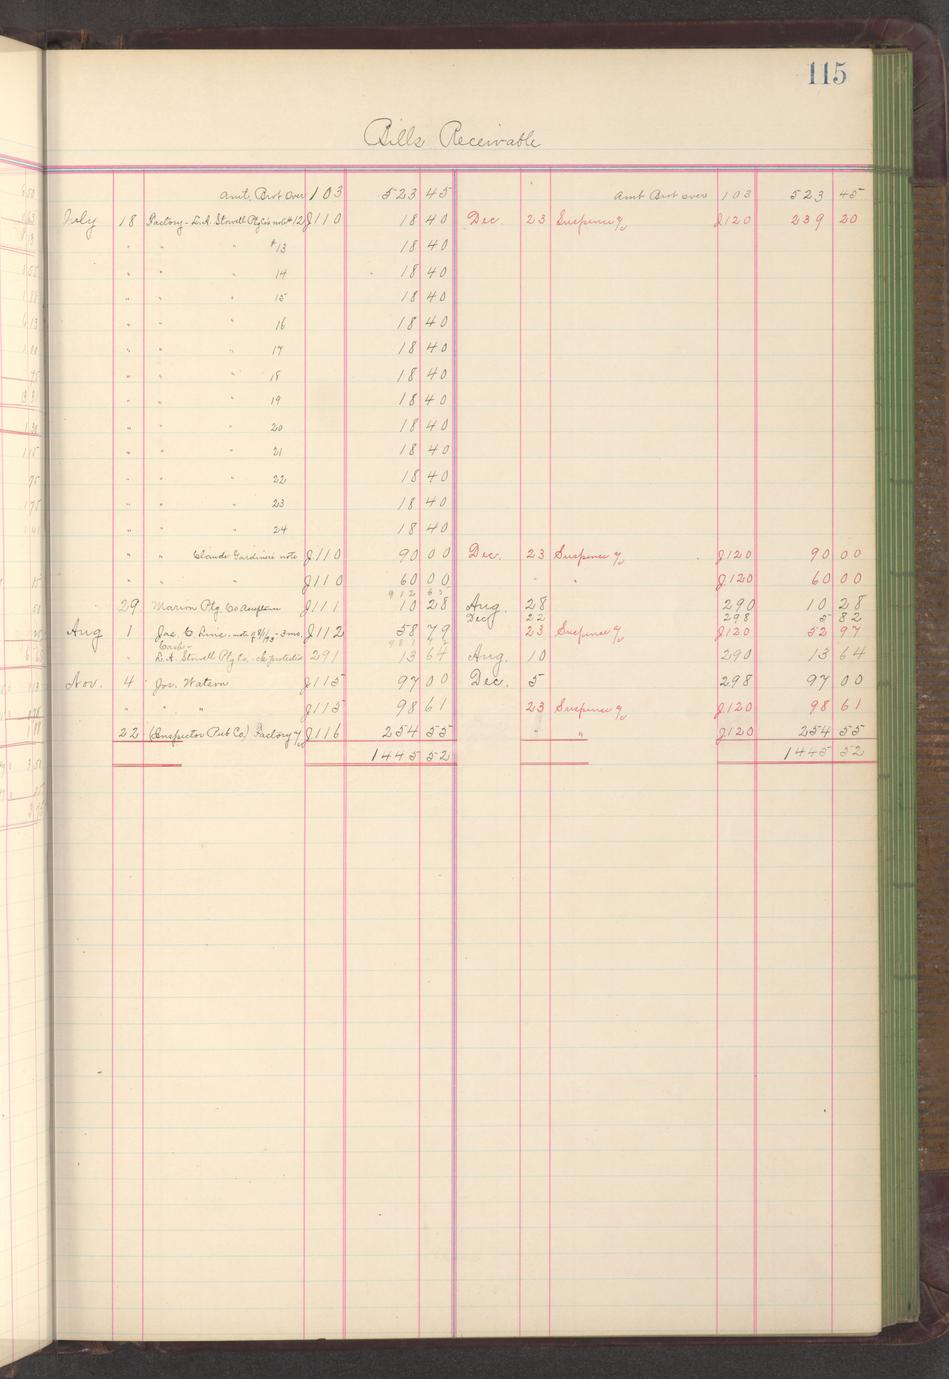 115
Bills Receivable
Amt. Brot Over 103 523 45 Amt Brot over 103 523 45
July 18 Factory - L.A. Stowell Ptg Co's note #12 J110 18 40 Dec. 23 Suspense a/c J120 239 20
" " " #13 18 40
" " " 14 18 40
" " " 15 18 40
" " " 16 18 40
" " " 17 18 40
" " " 18 18 40
" " " 19 18 40
" " " 20 18 40
" " " 21 18 40
" " " 22 18 40
" " " 23 18 40
" " " 24 18 40
" " Claude Gardiner's note J110 90 00 Dec. 23 Suspense a/c J120 90 00
" " " J110 60 00 " " J120 60 00
912 65
29 Marion Ptg. Co J111 10 28 Aug. 28 290 10 28
Dec 22 298 5 82
Aug 1 Jas. C note 3 mo. J112 58 79 23 Suspense a/c J120 52 97
Cash -
" L.A. Stowell Ptg Co. - protested 291 13 64 Aug. 10 290 13 64
Nov. 4 Jos. Watern J115 97 00 Dec. 5 298 97 00
" " " J115 98 61 23 Suspense a/c J120 98 61
22 (Inspector Pub Co) Factory a/c J116 254 55 " " J120 254 55
1445 52 1445 52